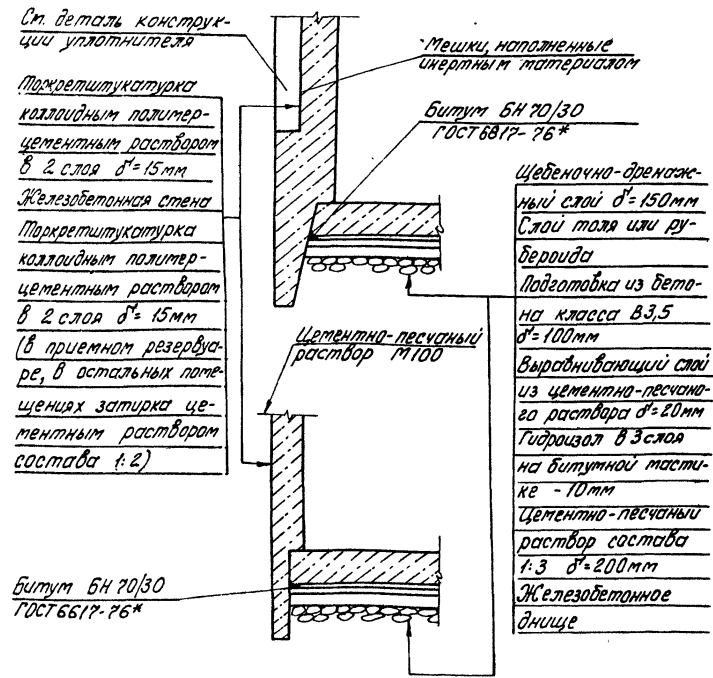 См. деталь конструк-
ции уплотнителя
Торкретштукатурка
коллоидным полимер-
цементным раствором
в 2 слоя δ=15мм
Железобетонная стена
Торкретштукатурка
коллоидным полимер-
цементным раствором
в 2 слоя δ=15мм
(в приемном резервуа-
ре, в остальных поме-
щениях затирка це-
ментным раствором
состава 1:2)
Мешки, наполненные
инертным материалом
Битум БН 70/30
ГОСТ6817-76*
Цементно-песчаный
раствор М100
Битум БН 70/30
ГОСТ6617-76*
Щебеночно-дренаж-
ный слой δ=150мм
Слой толя или ру-
бероида
Подготовка из бето-
на класса В3,5
δ=100мм
Выравнивающий слой
из цементно-песчано-
го раствора δ=20мм
Гидроизол в 3 слоя
на битумной масти-
ке -10мм
Цементно-песчаный
раствор состава
1:3 δ=200мм
Железобетонное
днище